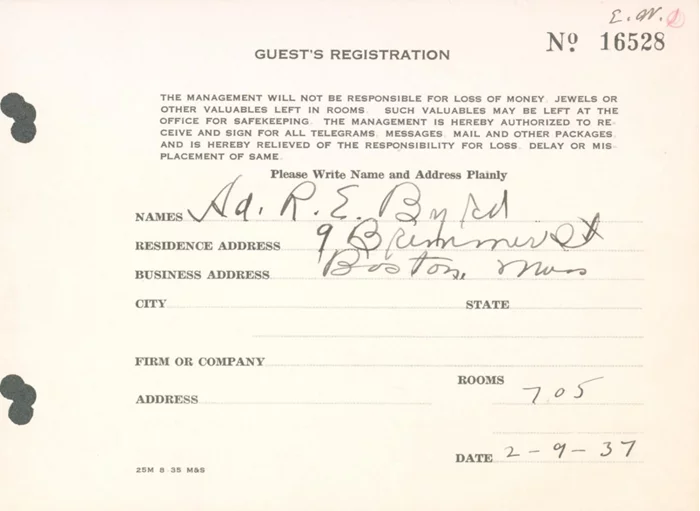 E.W.
Nº 16528
GUEST'S REGISTRATION
THE MANAGEMENT WILL NOT BE RESPONSIBLE FOR LOSS OF MONEY JEWELS OR
OTHER VALUABLES LEFT IN ROOMS. SUCH VALUABLES MAY BE LEFT AT THE
OFFICE FOR SAFEKEEPING. THE MANAGEMENT IS HEREBY AUTHORIZED TO RE-
CEIVE AND SIGN FOR ALL TELEGRAMS, MESSAGES, MAIL AND OTHER PACKAGES
AND IS HEREBY RELIEVED OF THE RESPONSIBILITY FOR LOSS, DELAY OR MIS-
PLACEMENT OF SAME.
Please Write Name and Address Plainly
NAMES Ad. R. E. Byrd
RESIDENCE ADDRESS 9 Brimmer St
BUSINESS ADDRESS Boston, Mass
CITY STATE
FIRM OR COMPANY
ROOMS 705
ADDRESS
DATE 2-9-37
25M 8-35 M&S